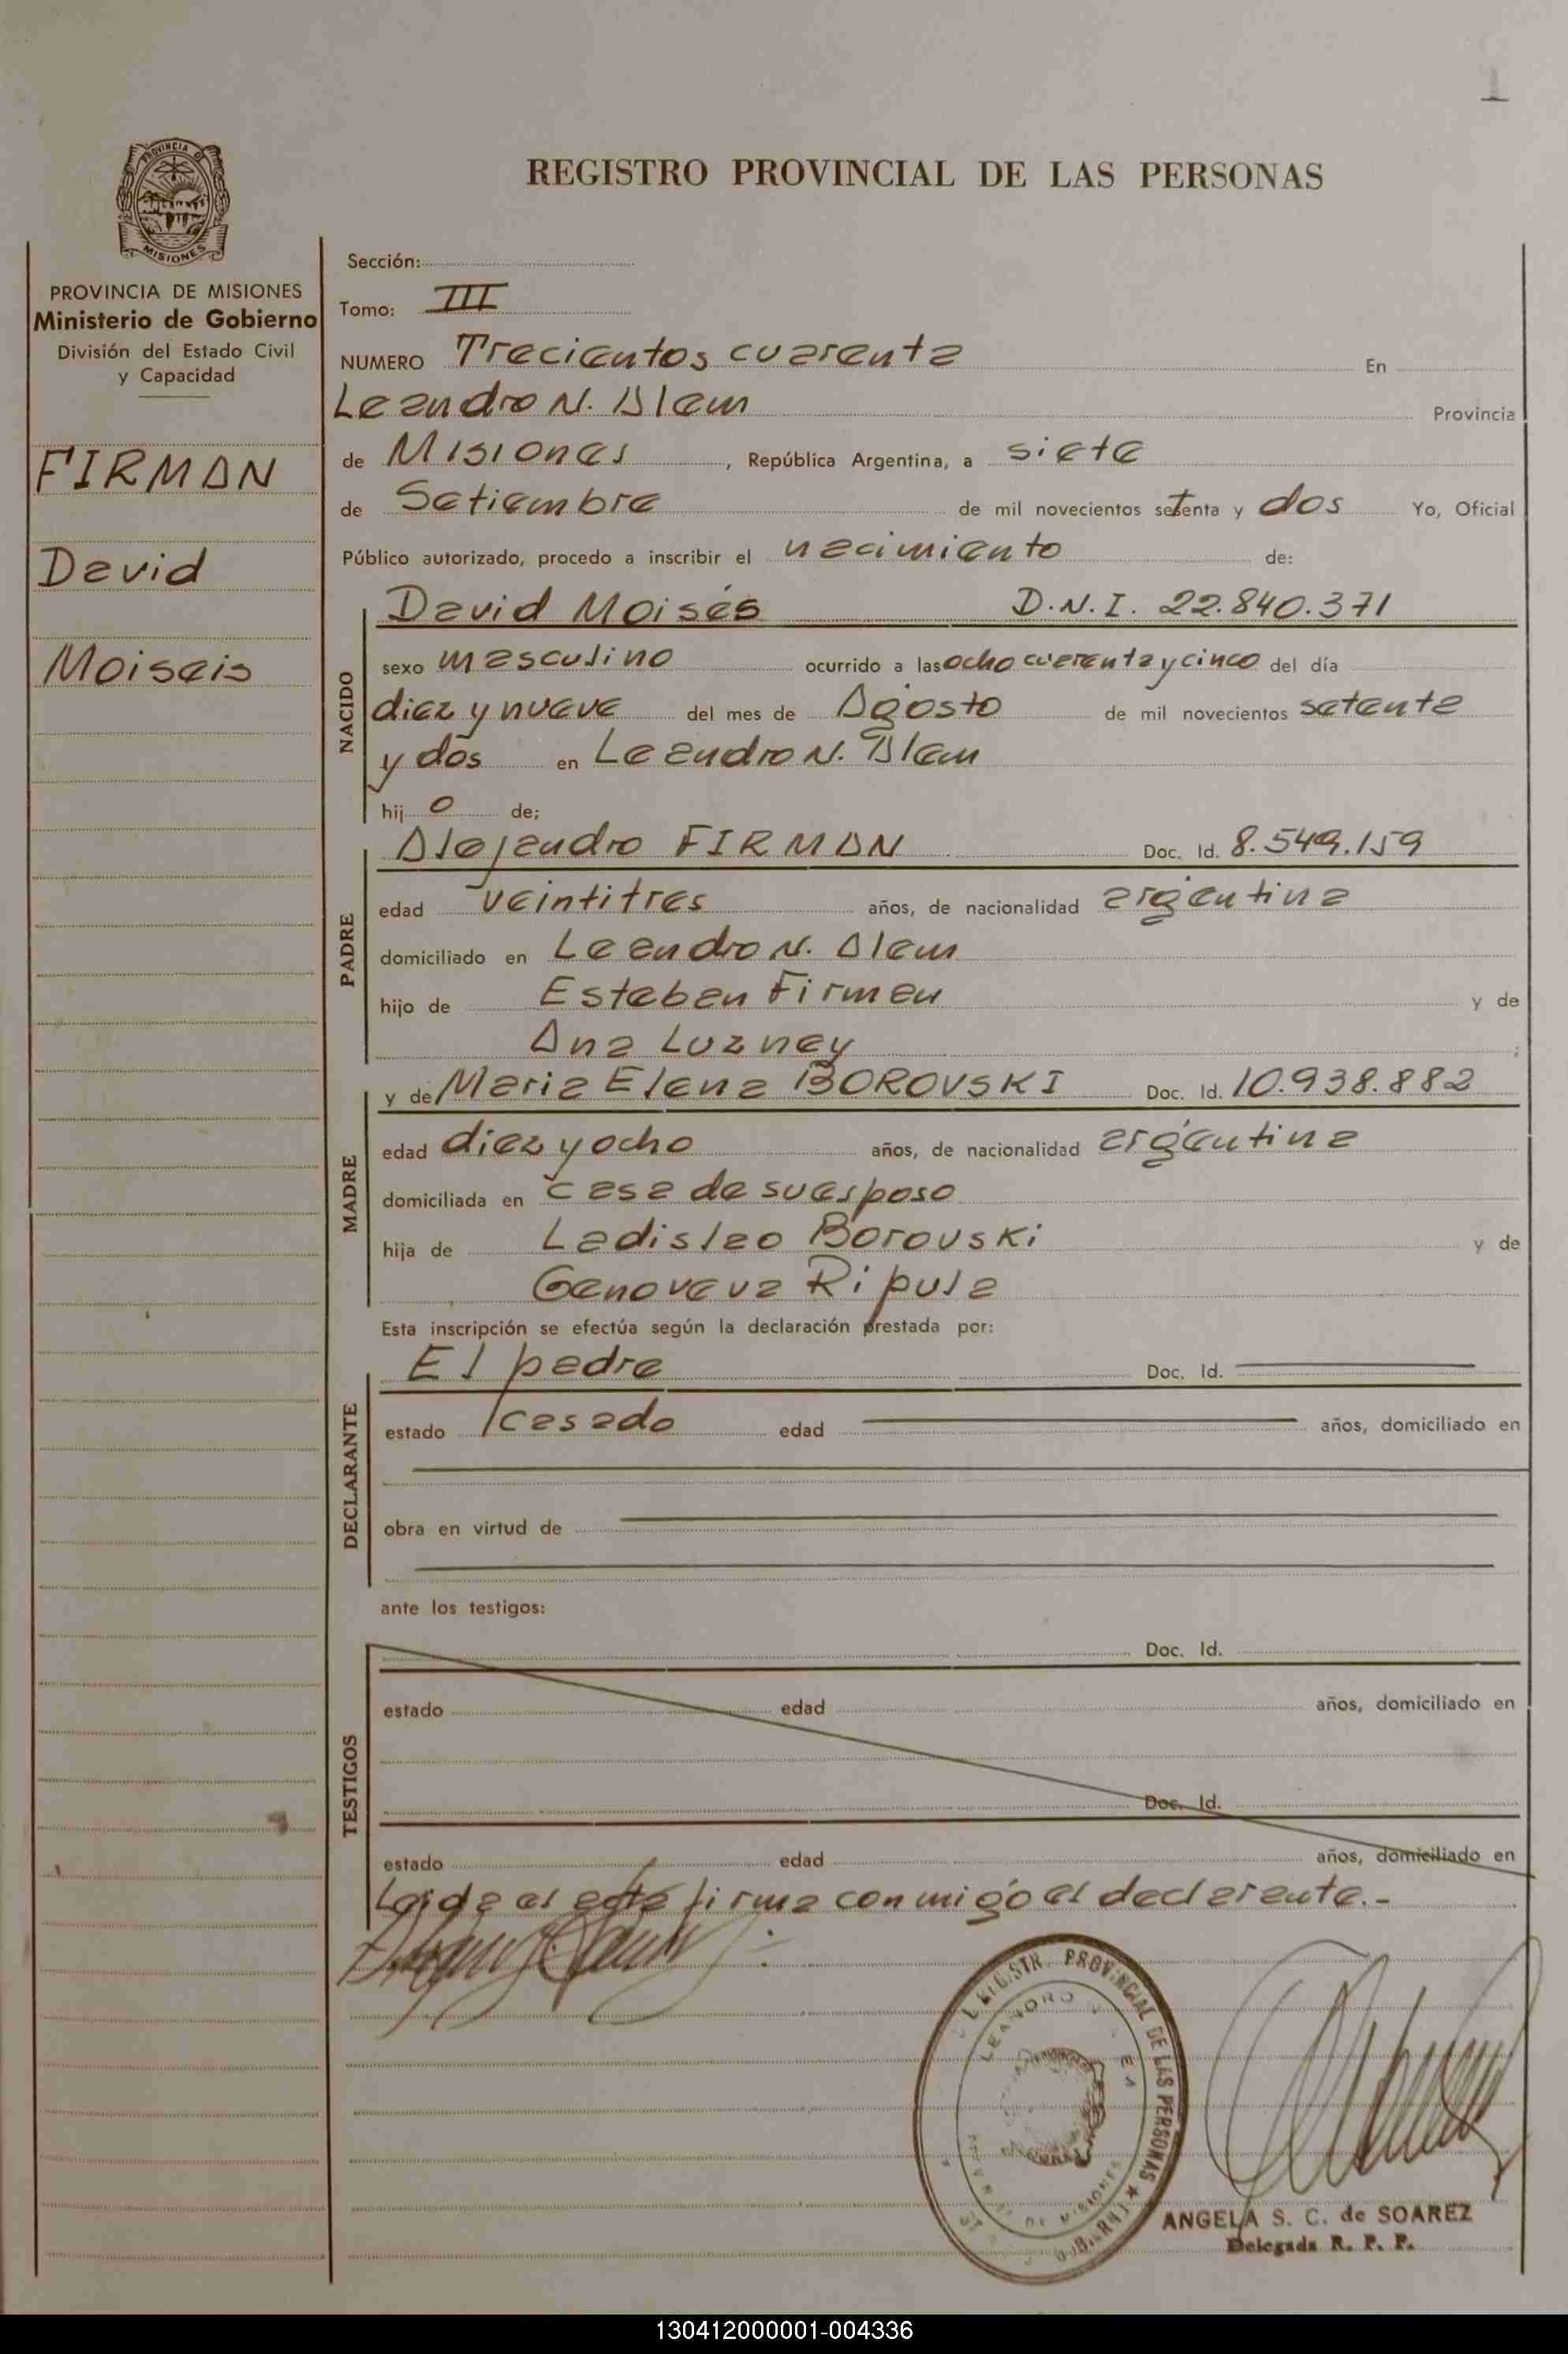 REGISTRO PROVINCIAL DE LAS PERSONAS
PROVINCIA DE MISIONES
Ministerio de Gobierno
División del Estado Civil
y Capacidad
FIRMAN
David
Moiseis
Sección:
Tomo: III
NUMERO Trecientos cuarenta En
Leandro N. Alem Provincia
de Misiones, República Argentina, a siete
de Setiembre de mil novecientos setenta y dos Yo, Oficial
Público autorizado, procedo a inscribir el nacimiento de:
NACIDO
David Moisés D.N.I. 22.840.371
sexo masculino ocurrido a las ocho cuarenta y cinco del día
diez y nueve del mes de Agosto de mil novecientos setenta
y dos en Leandro N. Alem
hij o de;
PADRE
Alejandro FIRMAN Doc. Id. 8.549.159
edad veintitres años, de nacionalidad argentina
domiciliado en Leandro N. Alem
hijo de Esteban Firman y de
Ana Luzney ;
MADRE
y de Maria Elena BOROVSKI Doc. Id. 10.938.882
edad diez y ocho años, de nacionalidad argentina
domiciliada en casa de su esposo
hija de Ladislao Borovski y de
Genoveva Ripula
Esta inscripción se efectúa según la declaración prestada por:
DECLARANTE
El padre Doc. Id.
estado casado edad años, domiciliado en
obra en virtud de
ante los testigos:
TESTIGOS
Doc. Id.
estado edad años, domiciliado en
Doc. Id.
estado edad años, domiciliado en
Leida el acta firma conmigo el declarante.-
PROVINCIAL DE LAS PERSONAS
LEANDRO
DE MISIONES
ANGELA S. C. de SOAREZ
Delegada R. P. P.
130412000001-004336